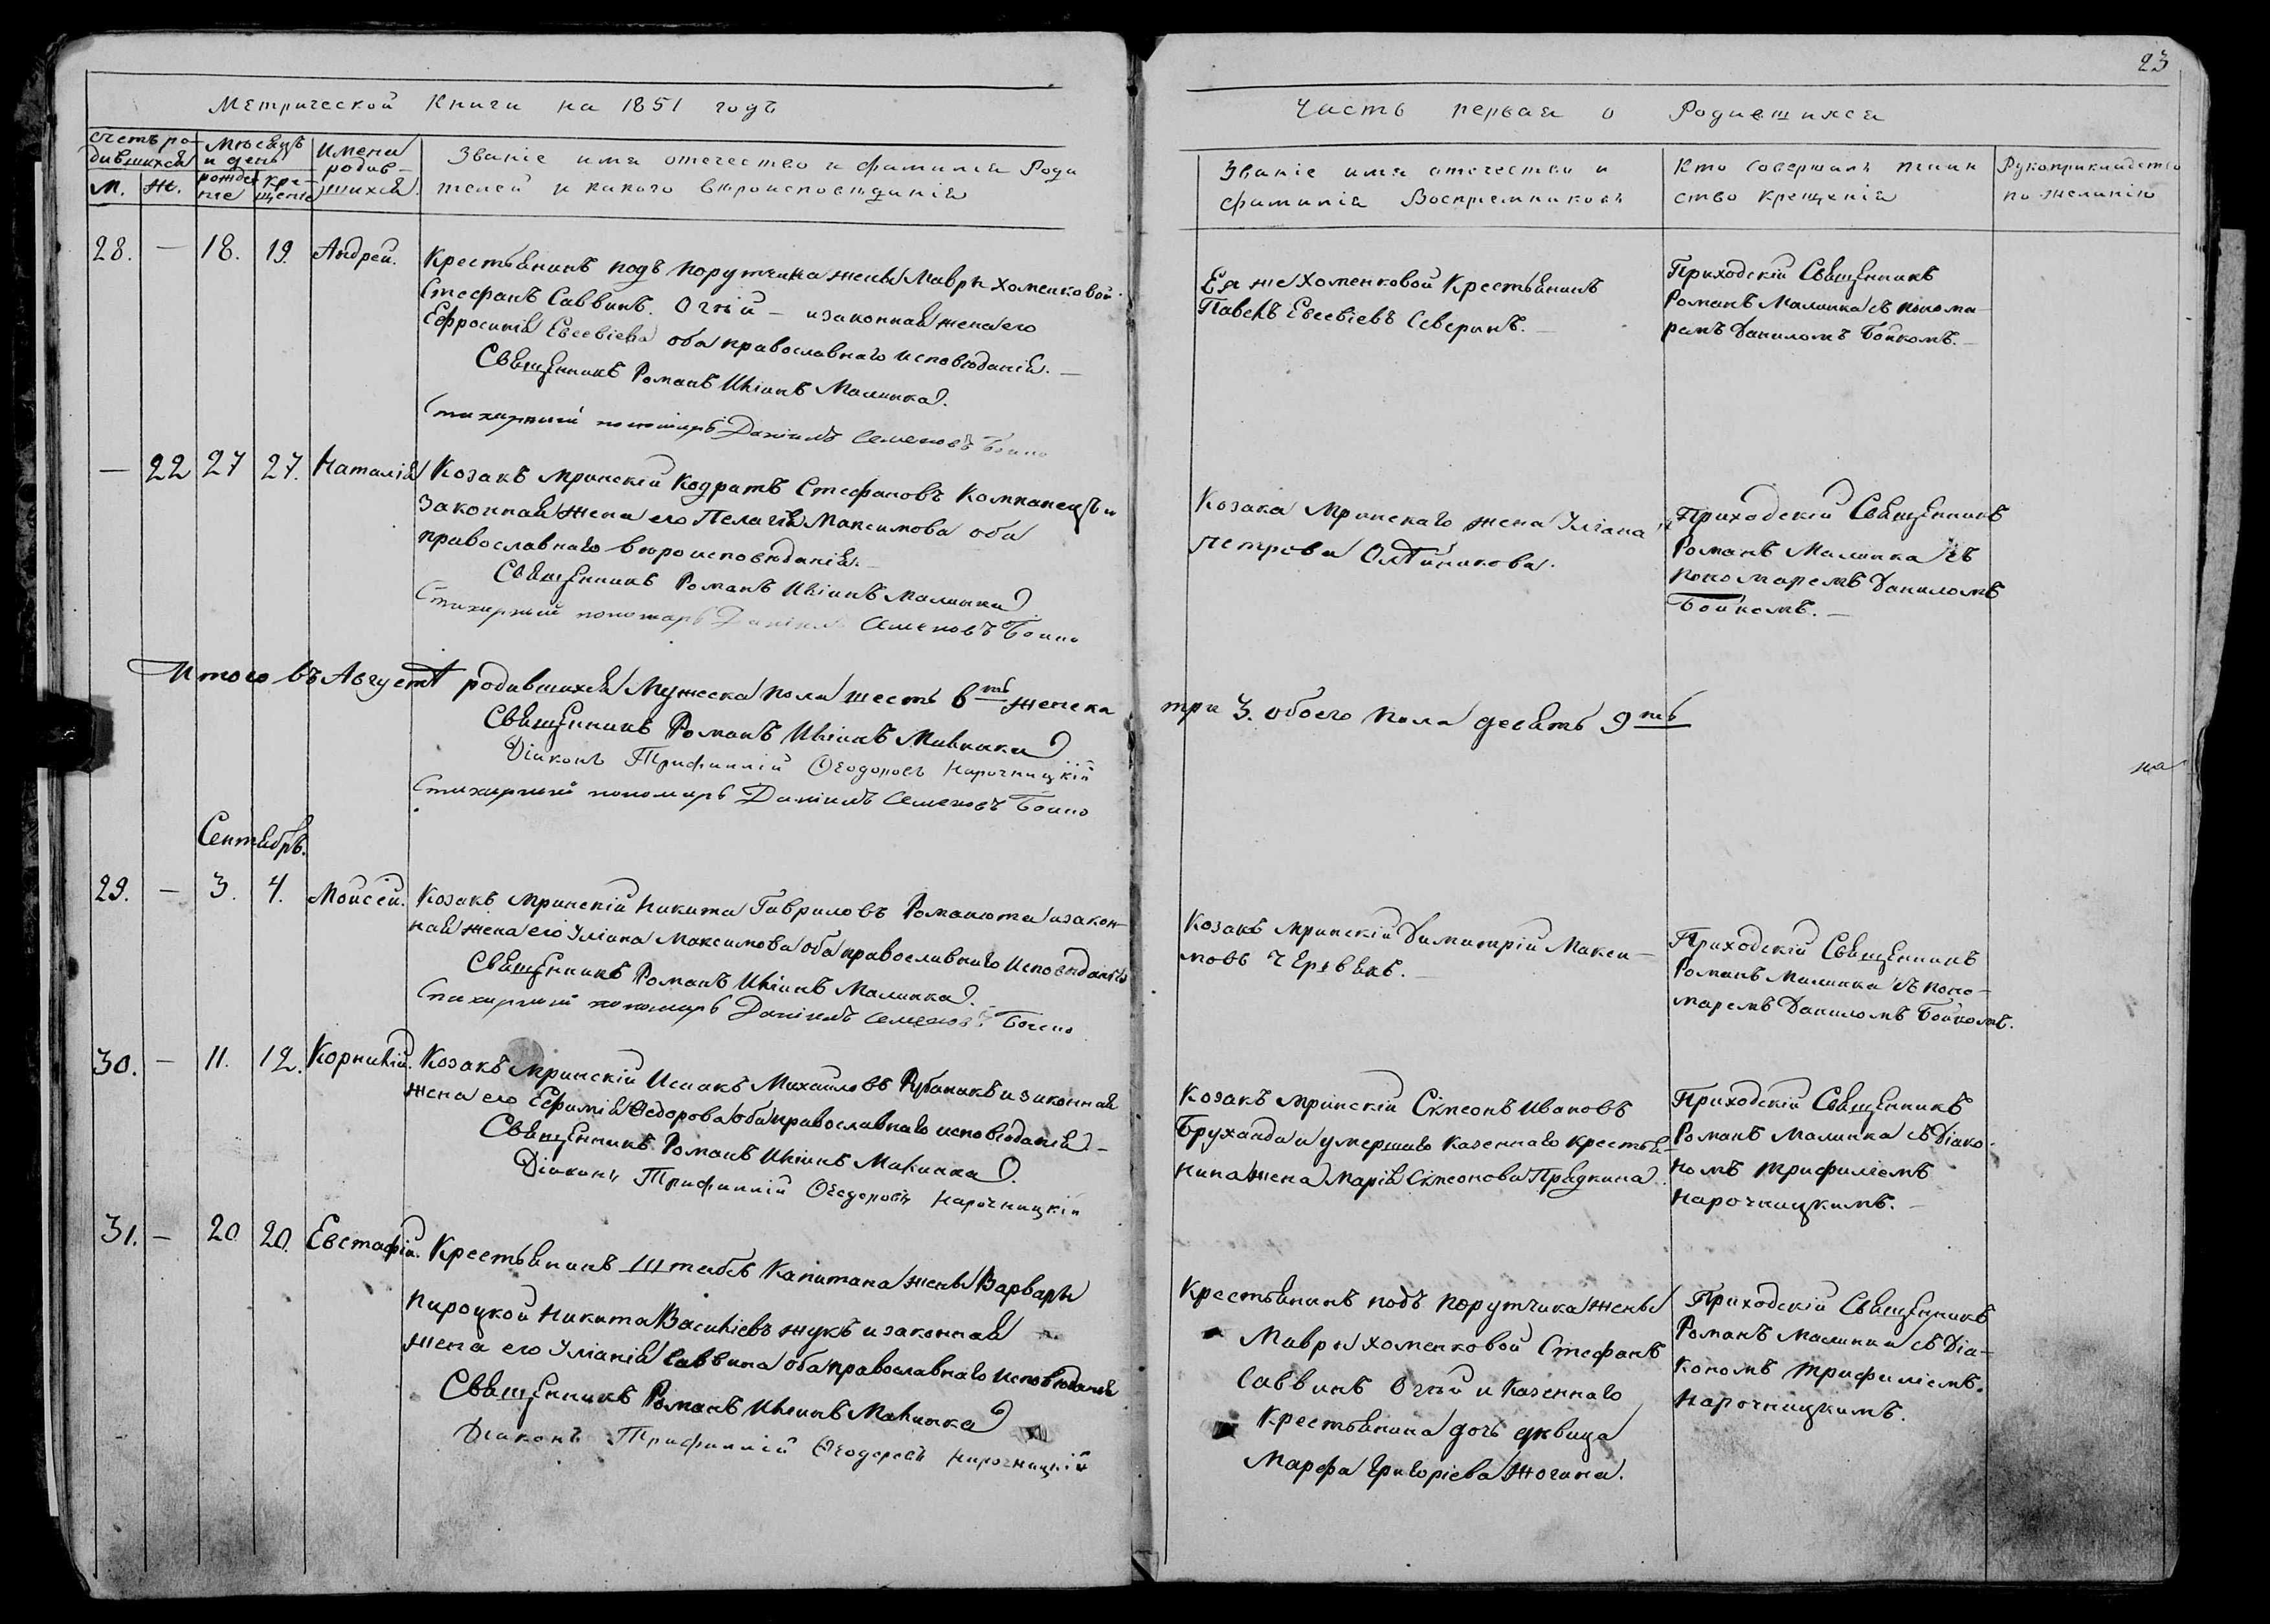 23
Метрической Книги на 1851 годъ
Часть первая о Родившихся
Счетъ ро-
дившихся
М. Ж.
Мѣсяцъ
и день
рожде
ніе
кре-
щенія
Имена
родив-
шихся.
Званіе имя отечество и фамилія Роди
телей и какого вѣроисповѣданія
Званіе имя отечество и
фамилія Воспріемниковъ
Кто совершалъ таин
ство крещенія
Рукоприкладство
по желанію
28. — 18. 19. Андрей.
Крестьянинъ подъ Порутчика жены Мавры Хоменковой
Стефанъ Саввинъ. Огѣй — и законная жена его
Ефросинія Евсевіева оба православнаго исповѣданія. —
Священникъ Романъ Иліинъ Малинка.
Стихирный пономарь Даніилъ Семеновъ Бойко
Ея же Хоменковой Крестьянинъ
Павелъ Евсевіевъ Северинъ. —
Приходскій Священникъ
Романъ Малинка съ понома
ремъ Даниломъ Бойкомъ. —
— 22 27 27. Наталія
Козакъ Мринскій Кодратъ Стефановъ Компанецъ и
законная жена его Пелагія Максимова оба
православнаго вѣроисповѣданія. —
Священникъ Романъ Иліинъ Малинка
Стихирный пономарь Даніилъ Семеновъ Бойко
Козака Мринскаго жена Уліана
Петрова Олѣйникова.
Приходскій Священникъ
Романъ Малинка съ
пономаремъ Даниломъ
Бойкомъ. —
Итого въ Августѣ родившихся Мужеска пола шесть 6ть женска
три 3. обоего пола десять 9ть
Священникъ Романъ Иліинъ Малинка
Діаконъ Трифиллій Ѳеодоровъ Нарочницкій
Стихирный пономарь Даніилъ Семеновъ Бойко
на
Сентябрь.
29. — 3. 4. Моисей.
Козакъ Мринскій Никита Гавриловъ Романюта и закон-
ная жена его Уліана Максимова оба православнаго исповѣданія
Священникъ Романъ Иліинъ Малинка.
Стихирный пономарь Даніилъ Семеновъ Бойко
Козакъ Мринскій Димитрій Макси-
мовъ Червякъ. —
Приходскій Священникъ
Романъ Малинка съ поно-
маремъ Даниломъ Бойкомъ.
30. — 11. 12. Корнилій.
Козакъ Мринскій Исаакъ Михайловъ Рубаникъ и законная
жена его Евфимія Ѳедорова оба православнаго исповѣданія. —
Священникъ Романъ Иліинъ Малинка.
Діаконъ Трифиллій Ѳеодоровъ Нарочницкій
Козакъ Мринскій Сѵмеонъ Ивановъ
Бруханда и умершаго казеннаго крестья-
нина жена Марія Сѵмеонова Прядкина.
Приходскій Священникъ
Романъ Малинка съ Діако-
номъ Трифиліемъ
Нарочницкимъ. —
31. — 20 20. Евстафій.
Крестьянинъ Штабсъ Капитана жены Варвары
Пироцкой Никита Василіевъ Жукъ и законная
жена его Уліанія Саввина оба православнаго исповѣданія
Священникъ Романъ Иліинъ Малинка
Діаконъ Трифиллій Ѳеодоровъ Нарочницкій
Крестьянинъ подъ Порутчика жены
Мавры Хоменковой Стефанъ
Саввинъ Огѣй и Казеннаго
Крестьянина дочь дѣвица
Марфа Григоріева Жогина.
Приходскій Священникъ
Романъ Малинка съ Діа-
кономъ Трифиліемъ.
Нарочницкимъ.